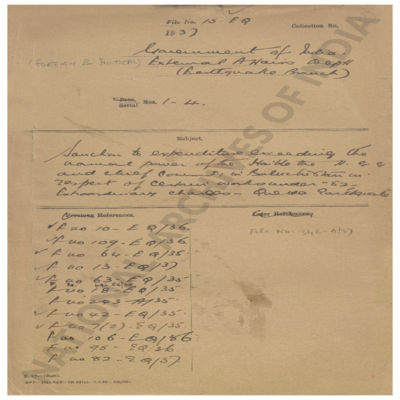 File No. 15-EQ
Collection No.
1937
Government of India
(FOREIGN & POLITICAL) External Affairs Deptt
(Earthquake Branch)
Serial Nos. 1-4.
Subject.
Sanction to expenditure exceeding the
normal power of the Hon'ble the A. G. G.
and Chief Commr. in Baluchistan in
respect of certain works under "52-
Extraordinary charges - Quetta Earthquake
Previous References.
Later References.
F. no 10-EQ/36
F. no 109-EQ/36
F. no 64-EQ/35
F. no 13-EQ/37
F. no 63-EQ/35
F. no 18-EQ/35
F. no 243-A/35
F. no 42-EQ/35
F. no (2)-EQ/35
F. no 106-EQ/36
F. no 95-EQ/36
F. no 82-EQ/37
NATIONAL ARCHIVES OF INDIA